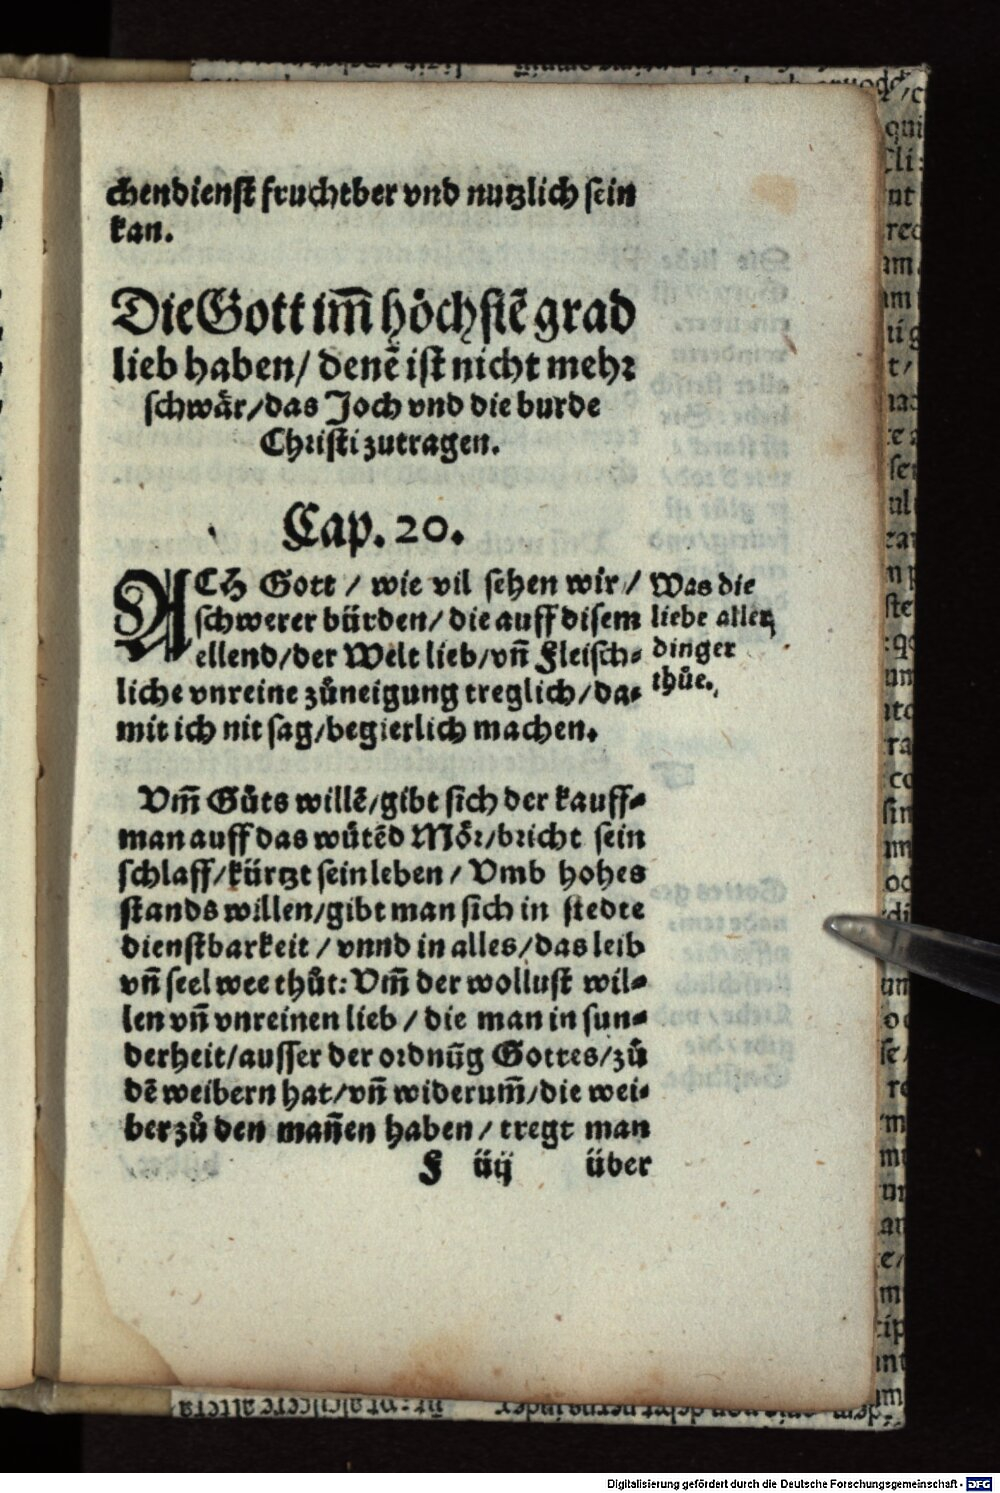 chendienst fruchtber vnd nutzlich sein
kan.
Die Gott im̄ höchstē grad
lieb haben/ denē ist nicht mehr
schwär/das Joch vnd die burde
Christi zutragen.
Cap. 20.
ACH Gott / wie vil sehen wir/
schwerer bürden/ die auff disem
ellend/der Welt lieb/vn̄ Fleisch-
liche vnreine zůneigung treglich/da-
mit ich nit sag/begierlich machen.
Was die
liebe aller
dinger
thüe.
Vm̄ Gůts willē/gibt sich der kauff-
man auff das wůtēd Mör/bricht sein
schlaff/kürtzt sein leben / Vmb hohes
stands willen/gibt man sich in stedte
dienstbarkeit / vnnd in alles/das leib
vn̄ seel wee thůt: Vm̄ der wollust wil-
len vn̄ vnreinen lieb / die man in sun-
derheit/ausser der ordnūg Gottes/zů
dē weibern hat/vn̄ widerum̄/die wei-
ber zů den man̄en haben / tregt man
F iiij über
Digitalisierung gefördert durch die Deutsche Forschungsgemeinschaft - DFG